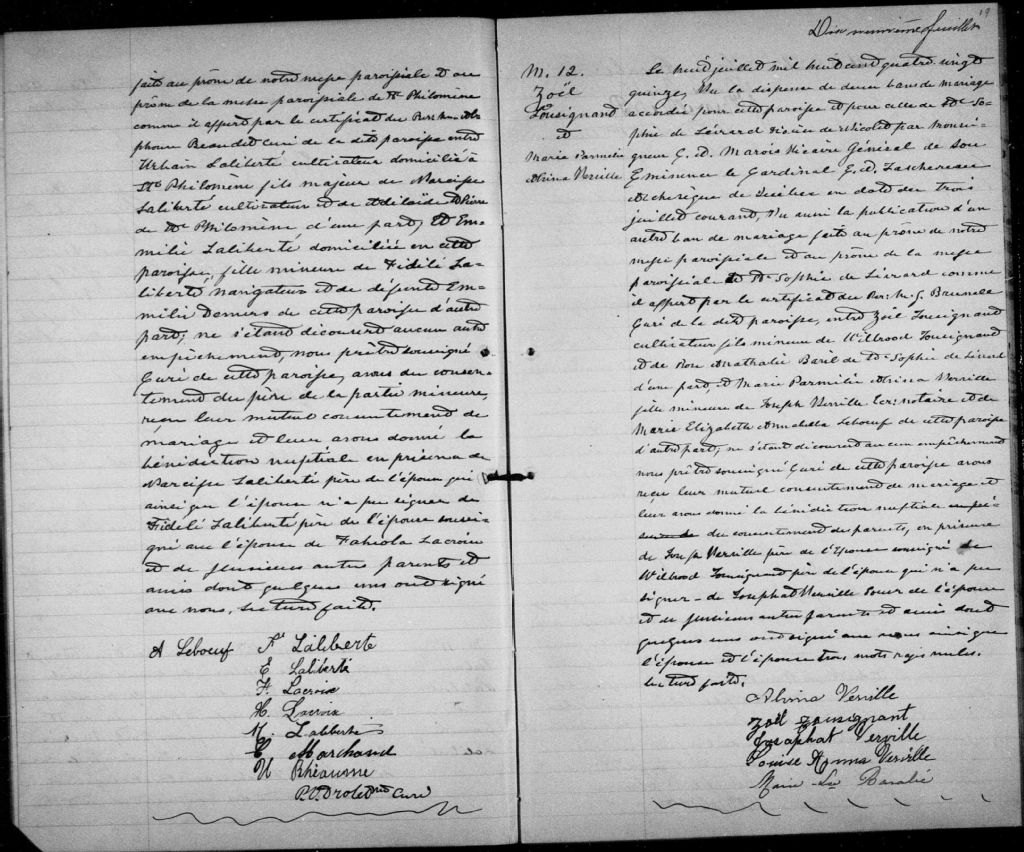 fait au prône de notre messe paroissiale et au
prône de la messe paroissiale de Ste Philomène
comme il appert par le certificat du Rev. Al-
phonse Beaudet Curé de la dite paroisse entre
Urbain Laliberté cultivateur domicilié à
Ste Philomène fils majeur de Narcisse
Laliberté cultivateur et de Adélaïde
de Ste Philomène, d'une part, et Em-
milie Laliberté, domiciliée en cette
paroisse, fille mineure de Fidèle La-
liberté navigateur et de défunte Em-
milie Demers de cette paroisse d'autre
part; ne s'étant découvert aucun autre
empêchement, nous prêtre soussigné
Curé de cette paroisse, avons du consen-
tement du père de la partie mineure,
reçu leur mutuel consentement de
mariage et leur avons donné la
bénédiction nuptiale en présence de
Narcisse Laliberté père de l'époux qui
ainsi que l'époux n'a pu signer de
Fidèle Laliberté père de l'épouse soussi-
gné avec l'épouse de Fabiola Lacroix
et de plusieurs autres parents et
amis dont quelques uns ont signé
avec nous, lecture faite.
A Leboeuf Fs Laliberte
E Laliberté
F. Lacroix
H. Lacroix
M. Laliberté
E Marchand
U Rhéaume
P.O. Drolet Ptre Curé
19
Dix neuvième feuillet
M. 12.
Zoël
Tousignant
et
Marie Parmelie
Alvina Verville
Le neuf juillet mil huit cent quatre vingt
quinze, Vu la dispense de deux bans de mariage
accordée pour cette paroisse et pour celle de Ste So-
phie de Lévrard Diocèse de Nicolet par Monsei-
gneur C. A. Marois Vicaire Général de Son
Eminence le Cardinal E. A. Taschereau
Archevêque de Québec en date du trois
juillet courant, Vu aussi la publication d'un
autre ban de mariage faite au prône de notre
messe paroissiale et au prône de la messe
paroissiale de Ste Sophie de Lévrard comme
il appert par le certificat du Rev. Brunelle
Curé de la dite paroisse, entre Zoël Tousignant
cultivateur fils mineur de Wilbrod Tousignant
et de Rose Nathalie Baril de Ste Sophie de Lévrard
d'une part, et Marie Parmelie Alvina Verville
fille mineure de Joseph Verville Ecr notaire et de
Marie Elizabeth Annabella Leboeuf de cette paroisse
d'autre part; ne s'étant découvert aucun empêchement
nous prêtre soussigné Curé de cette paroisse avons
reçu leur mutuel consentement de mariage et
leur avons donné la bénédiction nuptiale
du consentement des parents, en présence
de Joseph Verville père de l'Epouse soussigné de
Wilbrod Tousignant père de l'époux qui n'a pu
signer - de Josaphat Verville Soeur de l'épouse
et de plusieurs autres parents et amis dont
quelques uns ont signé avec nous ainsi que
l'épouse et l'époux trois mots rayés nuls.
lecture faite.
Alvina Verville
Zoël Tousignant
Josaphat Verville
Louise Anna Verville
Marie